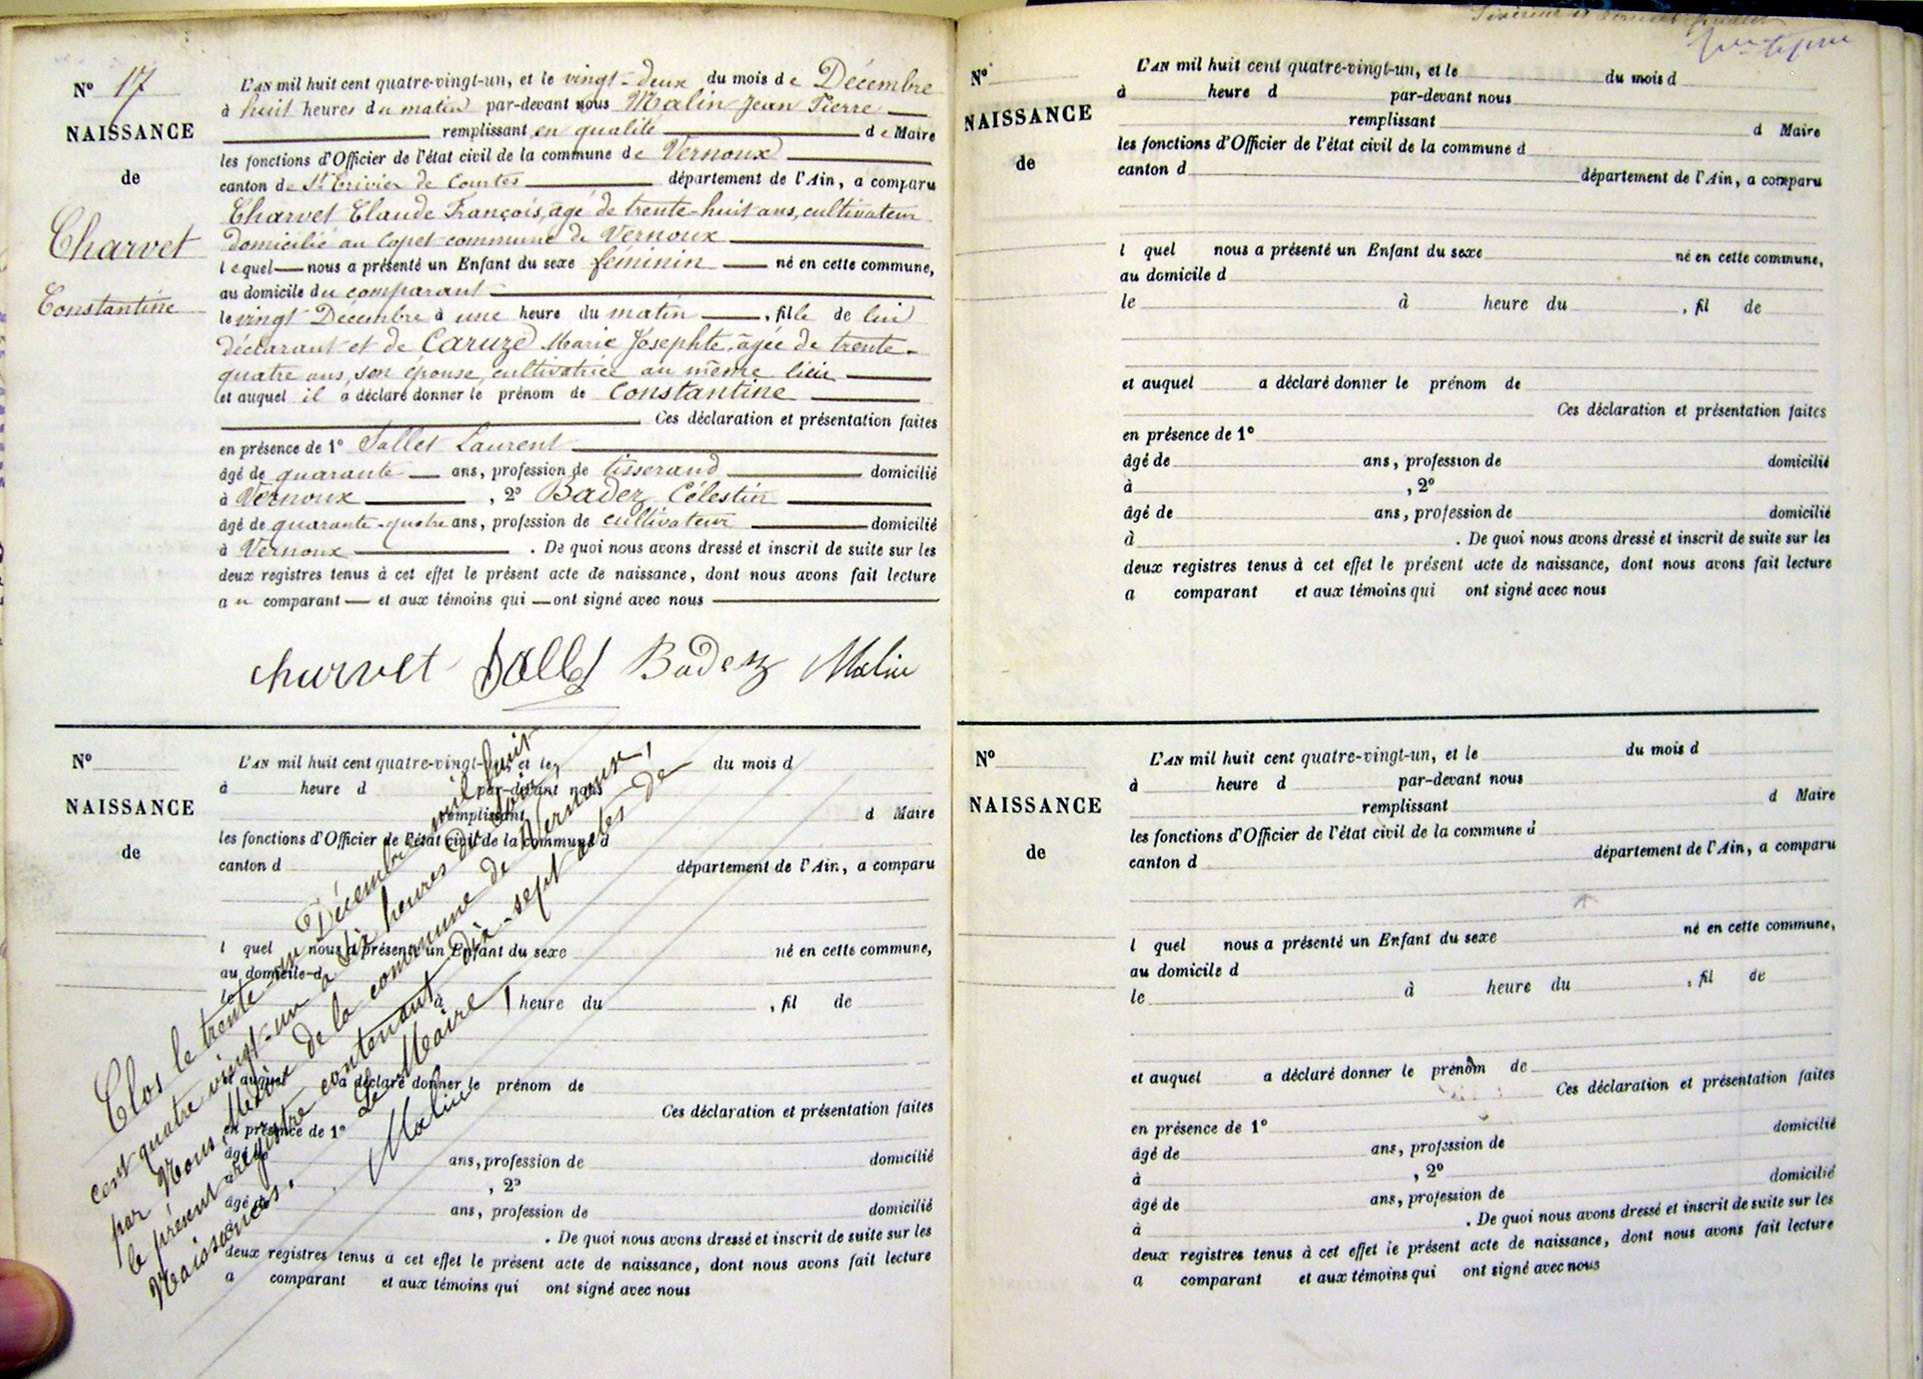 N° 17
NAISSANCE
de
Charvet
Constantine
L'AN mil huit cent quatre-vingt-un, et le vingt-deux du mois de Décembre
à huit heures du matin par-devant nous Malin Jean Pierre
remplissant en qualité de Maire
les fonctions d'Officier de l'état civil de la commune de Vernoux
canton de St Trivier de Courtes département de l'Ain, a comparu
Charvet Claude François, agé de trente-huit ans, cultivateur
domicilié au Copet commune de Vernoux
lequel nous a présenté un Enfant du sexe féminin né en cette commune,
au domicile du comparant
le vingt Décembre à une heure du matin, fille de lui
déclarant et de Caruzo Marie Josephte, agée de trente-
quatre ans, son épouse, cultivatrice au même lieu
et auquel il a déclaré donner le prénom de Constantine
Ces déclaration et présentation faites
en présence de 1° Sallet Laurent
âgé de quarante ans, profession de tisserand domicilié
à Vernoux, 2° Badez Célestin
âgé de quarante-quatre ans, profession de cultivateur domicilié
à Vernoux. De quoi nous avons dressé et inscrit de suite sur les
deux registres tenus à cet effet le présent acte de naissance, dont nous avons fait lecture
au comparant et aux témoins qui ont signé avec nous
charvet Sallet Badez Malin
N°
NAISSANCE
de
L'AN mil huit cent quatre-vingt-un, et le du mois d
à heure d par-devant nous
remplissant d Maire
les fonctions d'Officier de l'état civil de la commune d
canton d département de l'Ain, a comparu
l quel nous a présenté un Enfant du sexe né en cette commune,
au domicile d
le à heure du , fil de
et auquel a déclaré donner le prénom de
Ces déclaration et présentation faites
en présence de 1°
âgé de ans, profession de domicilié
à , 2°
âgé de ans, profession de domicilié
à . De quoi nous avons dressé et inscrit de suite sur les
deux registres tenus à cet effet le présent acte de naissance, dont nous avons fait lecture
a comparant et aux témoins qui ont signé avec nous
Clos le trente-un Décembre mil huit
cent quatre vingt-un à six heures du soir,
par Nous, Maire de la commune de Vernoux,
le présent registre contenant dix-sept actes de
Naissances. Le Maire,
Malin
N°
NAISSANCE
de
L'AN mil huit cent quatre-vingt-un, et le du mois d
à heure d par-devant nous
remplissant d Maire
les fonctions d'Officier de l'état civil de la commune d
canton d département de l'Ain, a comparu
l quel nous a présenté un Enfant du sexe né en cette commune,
au domicile d
le à heure du , fil de
et auquel a déclaré donner le prénom de
Ces déclaration et présentation faites
en présence de 1°
âgé de ans, profession de domicilié
à , 2°
âgé de ans, profession de domicilié
à . De quoi nous avons dressé et inscrit de suite sur les
deux registres tenus à cet effet le présent acte de naissance, dont nous avons fait lecture
a comparant et aux témoins qui ont signé avec nous
N°
NAISSANCE
de
L'AN mil huit cent quatre-vingt-un, et le du mois d
à heure d par-devant nous
remplissant d Maire
les fonctions d'Officier de l'état civil de la commune d
canton d département de l'Ain, a comparu
l quel nous a présenté un Enfant du sexe né en cette commune,
au domicile d
le à heure du , fil de
et auquel a déclaré donner le prénom de
Ces déclaration et présentation faites
en présence de 1°
âgé de ans, profession de domicilié
à , 2°
âgé de ans, profession de domicilié
à . De quoi nous avons dressé et inscrit de suite sur les
deux registres tenus à cet effet le présent acte de naissance, dont nous avons fait lecture
a comparant et aux témoins qui ont signé avec nous